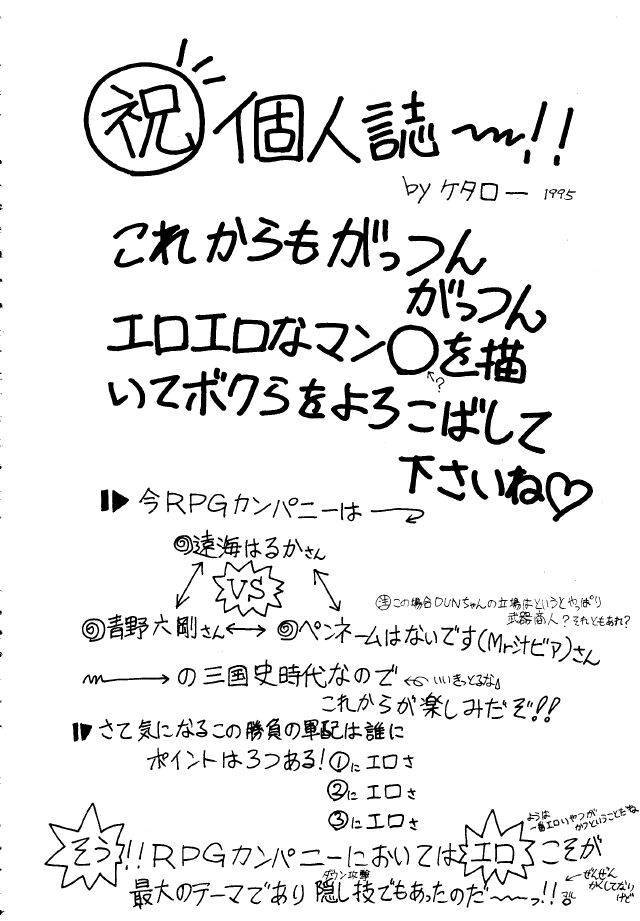 祝 個人誌〜!!
by ケタロー 1995
これからもがっつん
がっつん
エロエロなマン○を描
←?
いてボクらをよろこばして
下さいね♡
今RPGカンパニーは
遠海はるかさん
VS
注この場合DUNちゃんの立場はというとやっぱり
武器商人?それともあれ?
青野六剛さん↔ペンネームはないです(Mr汁ビア)さん
〜→の三国史時代なので
←いいきっとるな
これからが楽しみだぞ!!
さて気になるこの勝負の軍配は誰に
ポイントは3つある!①にエロさ
②にエロさ
③にエロさ
ようは
一番エロいやつが
かつということだね
そう!!RPGカンパニーにおいてはエロこそが
ダウン攻撃
最大のテーマであり隠し技でもあったのだ〜っ!!
←ぜんぜん
かくしてない
けど